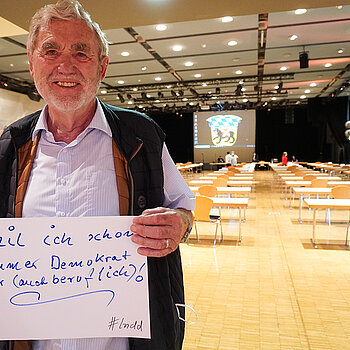 eil ich schon
mmer Demokrat
r (auch beruf(ich)!
#lndd